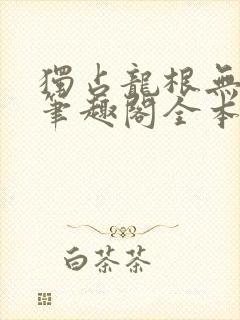 獨占龍根無
筆趣閣全本
白茶茶